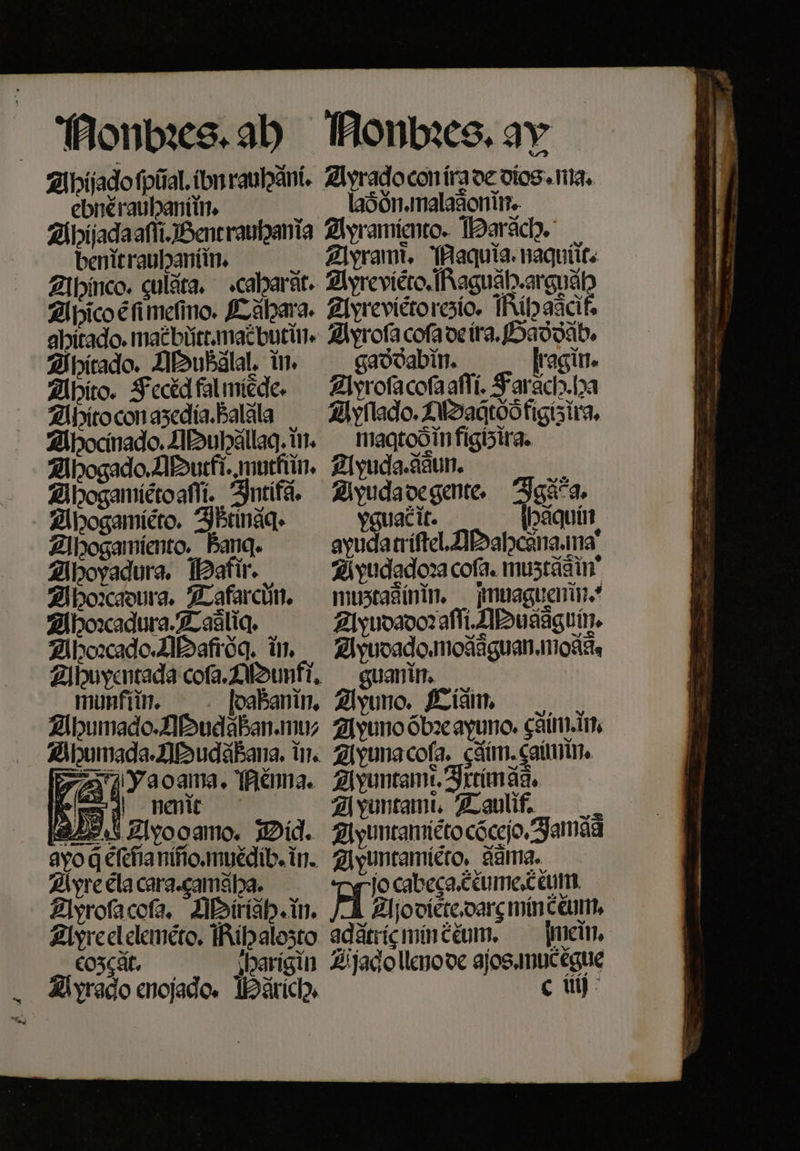 Nonbres. ab
Ahijado spũal. ibn rauhãni.
ebnẽ rauhaniin.
Ahijada assi. Bent rauhanĩa
benit rauhaniin.
Ahinco. çulãta. cabarãt.
Ahico é si mesmo. Cãbara.
ahitado. macbũtt. macbutin.
Ahitado. Mubãlal. in.
Ahito. Fecẽd falmiẽde.
Ahito con azedia. halãla
Ahocinado. Muhãllaq. in.
Ahogado. Mutfi. mutfiin.
Ahogamiẽto assi. Intifã.
Ahogamiẽto. Ihtinãq.
Ahogamiento. hanq.
Ahoyadura. Hafir.
Ahorcadura. Tafarcũn.
Ahorcadura. Taãliq.
Ahorcado. Mafrõq. in.
Ahuyentada cosa. Munfi.
munfiin. [dahanin,
Ahumado. Mudãhan. mu=
Ahumada. Mudãhana. in.
Yaoama. Nẽnna.
nenit
Ayo o amo. Did.
ayo q̃ ẽseña niño. muẽdib. in.
Ayre ẽ la cara. gamãha.
Ayrosa cosa. Miriãh. in.
Ayre el elemẽto. Rih alozto
cozçãt. [harigin
Ayrado enojado. Hãrich.
Nonbres. ay
Ayrado con ira de dios. ma.
ladõn. maladonin.
Ayramiento. Harãch.
Ayrami. Naquia. naquiit.
Ayre viẽto. Raguãh. arguãh
Ayre viẽto rezio. Rih aãcif.
Ayrosa cosa de ira. Gaddãb.
gaddabin. [ragin.
Ayrosa cosa assi. Farãch. ha
Ayslado. Maqtõõ figizira.
maqtoõin figizira.
Ayuda. ããun.
Ayuda de gente. Igãca.
yguacit. [hãquin
ayuda triste l. Mahcãna. ma
Ayudadora cosa. muztããin
muztaãinin. [muaguenin.
Ayudador assi. Muããguin.
Ayudado. moããguan. moãã,
guanin.
Ayuno. Ciãm.
Ayuno õbre ayuno. çãim. in.
Ayuna cosa. çãim. çaimin.
Ayuntami. Irtimãã.
Ayuntami. Taulif.
Ayuntamiẽto cõcejo. Jamãã
Ayuntamiẽto. ããma.
jo cabeça. c̃ẽume. c̃ẽum.
Ajo diẽte. darç min c̃ẽum.
adãtrĩç min c̃ẽum. [mein.
Ajado lleno de ajos. mucẽgue
c iiij